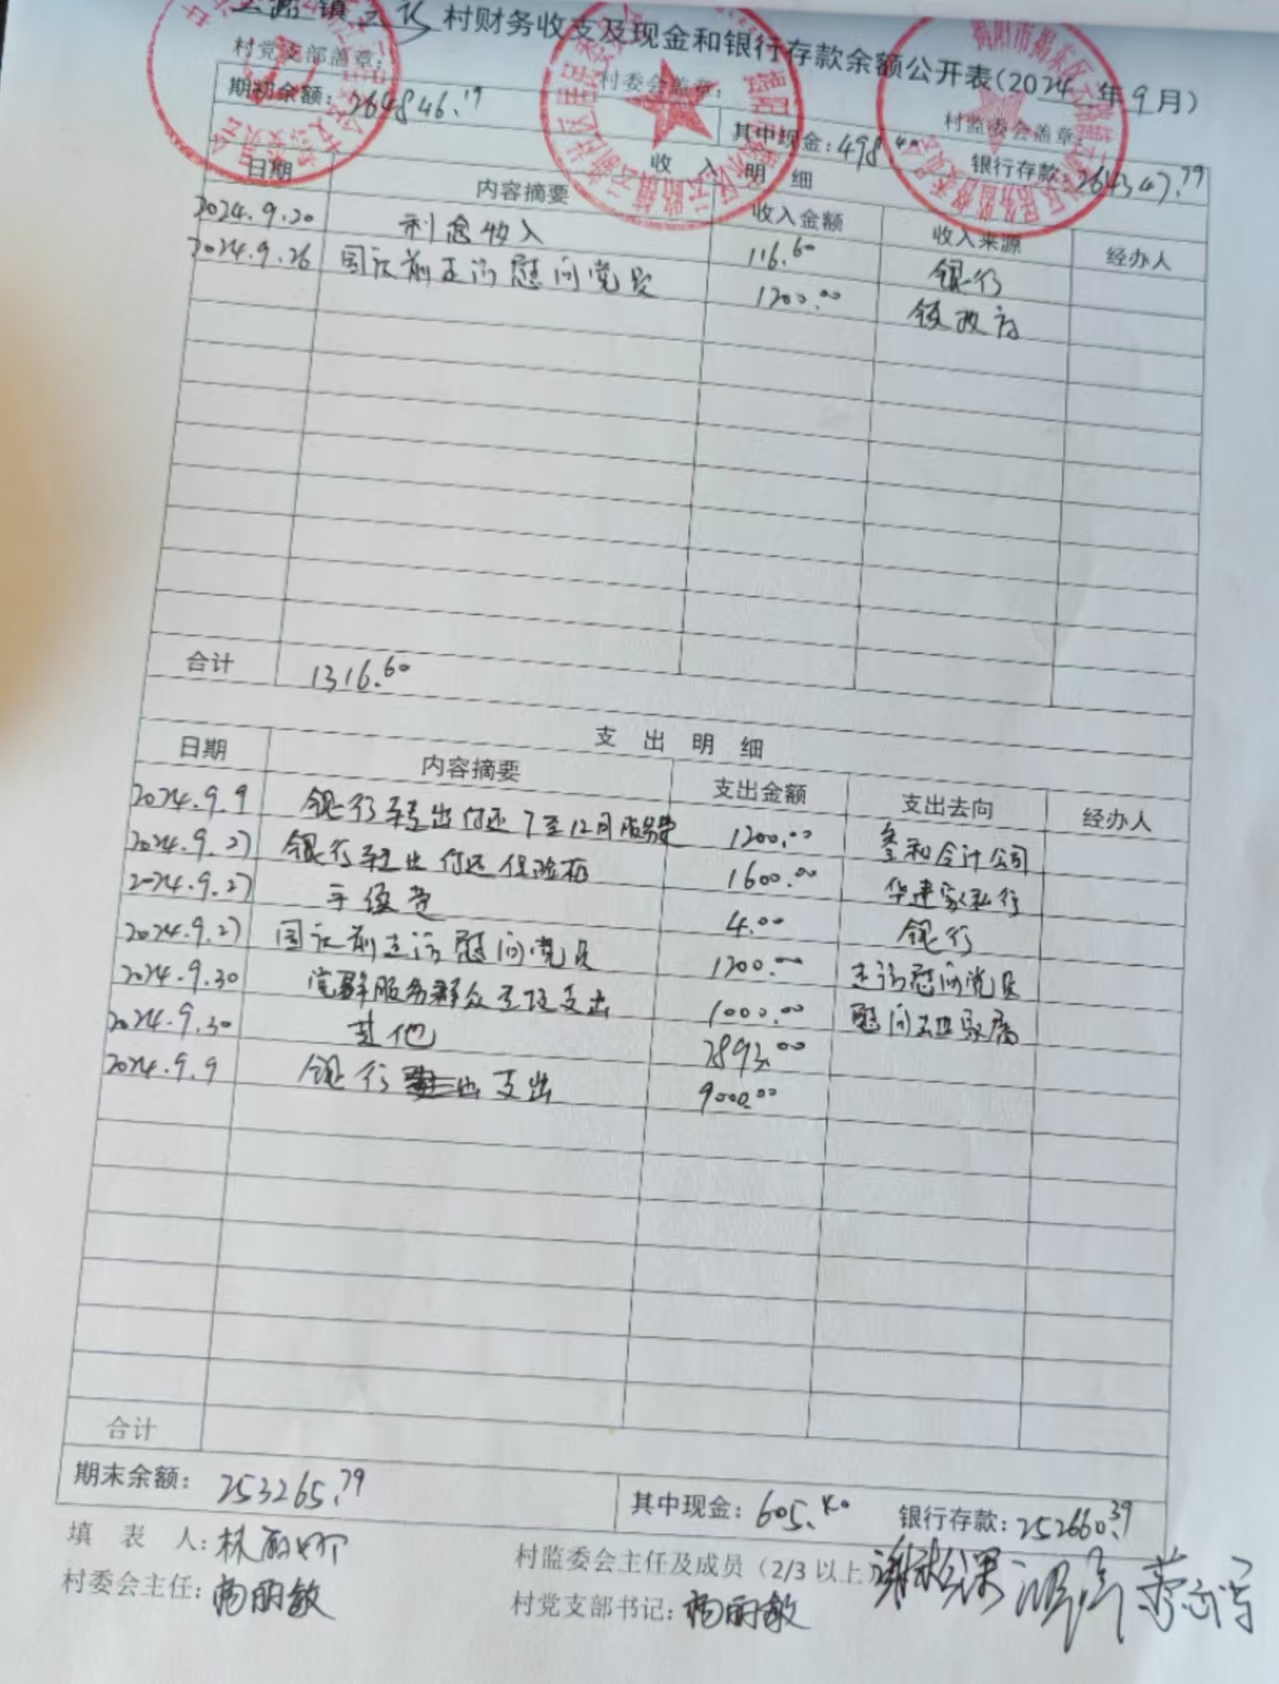 云路镇云 村财务收支及现金和银行存款余额公开表(2024年9月)
村党支部盖章: 村委会盖章: 村监委会盖章:
期初余额:264846.19 其中现金:498.40 银行存款:264347.79
收入明细
日期 内容摘要 收入金额 收入来源 经办人
2024.9.20 利息收入 116.60 银行
2024.9.26 国庆前走访慰问党员 1200.00 镇政府
合计 1316.60
支出明细
日期 内容摘要 支出金额 支出去向 经办人
2024.9.9 银行转出付还7至12月服务费 1200.00 叁和会计公司
2024.9.27 银行转出付还保险柜 1600.00 华建家私行
2024.9.27 手续费 4.00 银行
2024.9.27 国庆前走访慰问党员 1200.00 走访慰问党员
2024.9.30 党群服务群众支出 1000.00 慰问 家属
2024.9.30 其他 2893.00
2024.9.9 银行 支出 9000.00
合计
期末余额:253265.79 其中现金:605.40 银行存款:252660.39
填表人:林 村监委会主任及成员(2/3以上)
村委会主任:杨丽敏 村党支部书记:杨丽敏